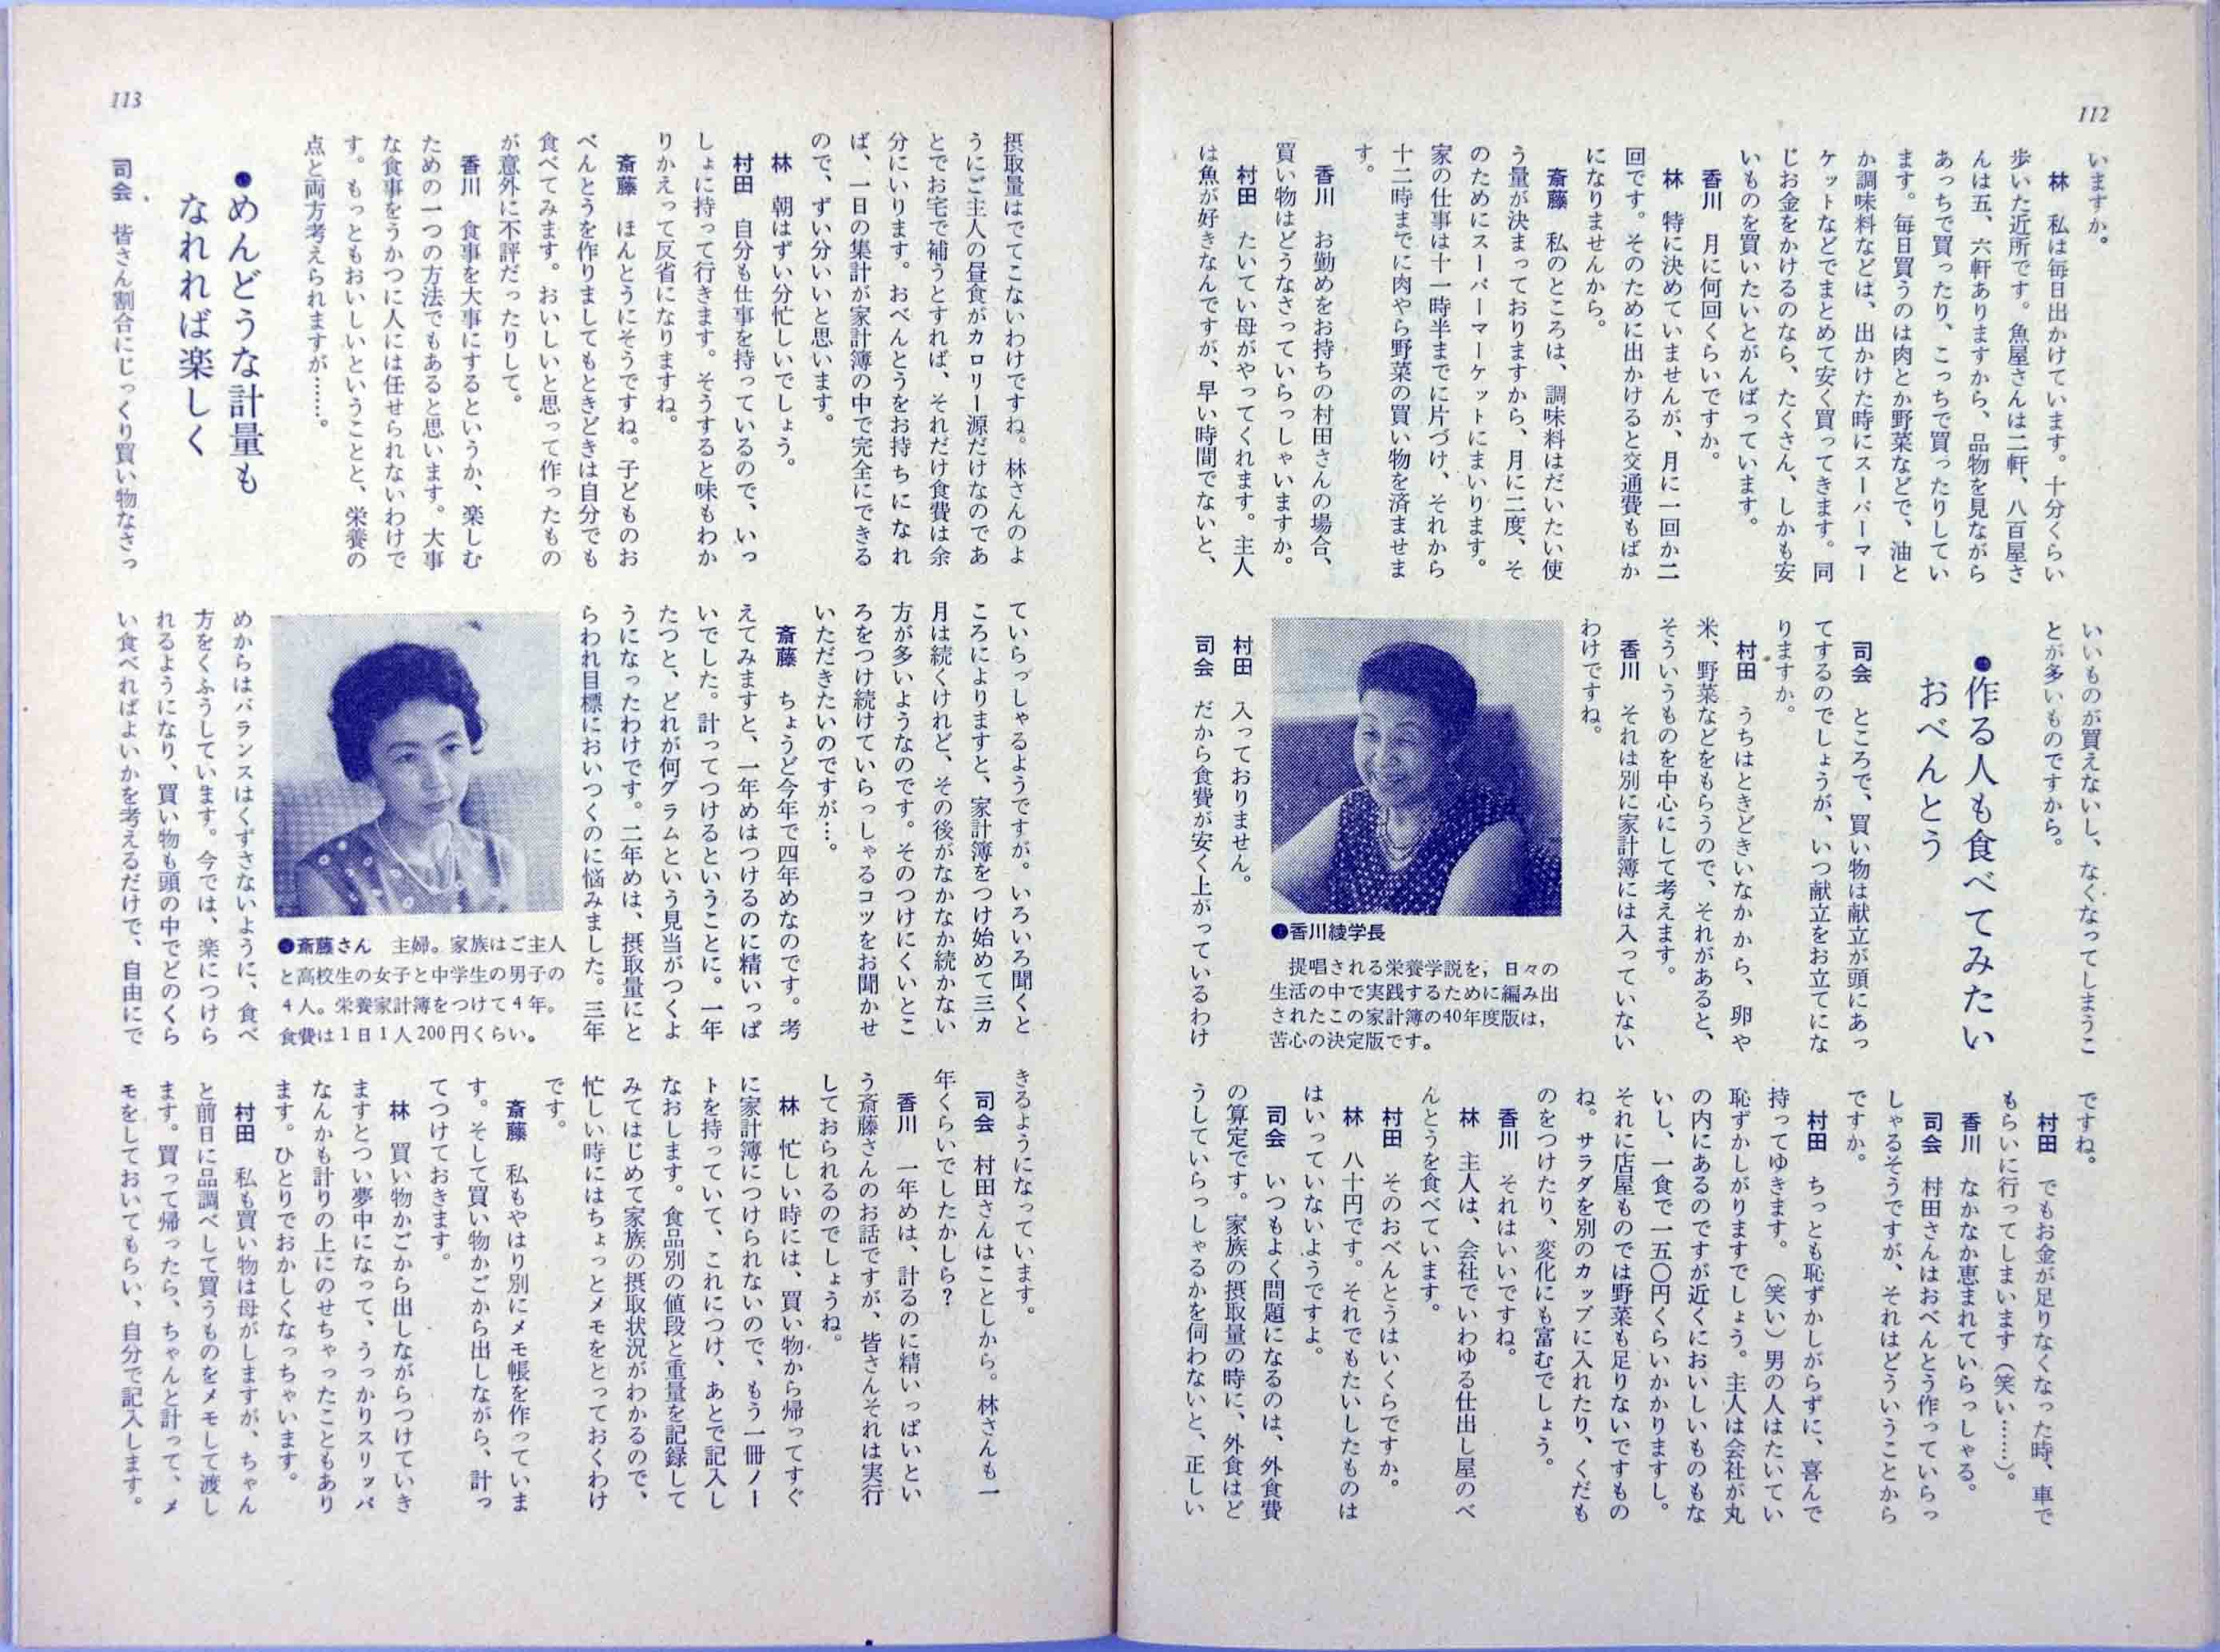 112
いますか。
林　私は毎日出かけています。十分くらい
歩いた近所です。魚屋さんは二軒、八百屋さ
んは五、六軒ありますから、品物を見ながら
あっちで買ったり、こっちで買ったりしてい
ます。毎日買うのは肉とか野菜などで、油と
か調味料などは、出かけた時にスーパーマー
ケットなどでまとめて安く買ってきます。同
じお金をかけるのなら、たくさん、しかも安
いものを買いたいとがんばっています。
香川　月に何回くらいですか。
林　特に決めていませんが、月に一回か二
回です。そのために出かけると交通費もばか
になりませんから。
斎藤　私のところは、調味料はだいたい使
う量が決まっておりますから、月に二度、そ
のためにスーパーマーケットにまいります。
家の仕事は十一時半までに片づけ、それから
十二時までに肉やら野菜の買い物を済ませま
す。
香川　お勤めをお持ちの村田さんの場合、
買い物はどうなさっていらっしゃいますか。
村田　たいてい母がやってくれます。主人
は魚が好きなんですが、早い時間でないと、
いいものが買えないし、なくなってしまうこ
とが多いものですから。
●作る人も食べてみたい
おべんとう
司会　ところで、買い物は献立が頭にあっ
てするのでしょうが、いつ献立をお立てにな
りますか。
村田　うちはときどきいなかから、卵や
米、野菜などをもらうので、それがあると、
そういうものを中心にして考えます。
香川　それは別に家計簿には入っていない
わけですね。
●香川綾学長
提唱される栄養学説を，日々の
生活の中で実践するために編み出
されたこの家計簿の40年度版は，
苦心の決定版です。
村田　入っておりません。
司会　だから食費が安く上がっているわけ
ですね。
村田　でもお金が足りなくなった時、車で
もらいに行ってしまいます（笑い……）。
香川　なかなか恵まれていらっしゃる。
司会　村田さんはおべんとう作っていらっ
しゃるそうですが、それはどういうことから
ですか。
村田　ちっとも恥ずかしがらずに、喜んで
持ってゆきます。（笑い）男の人はたいてい
恥ずかしがりますでしょう。主人は会社が丸
の内にあるのですが近くにおいしいものもな
いし、一食で一五〇円くらいかかりますし。
それに店屋ものでは野菜も足りないですもの
ね。サラダを別のカップに入れたり、くだも
のをつけたり、変化にも富むでしょう。
香川　それはいいですね。
林　主人は、会社でいわゆる仕出し屋のべ
んとうを食べています。
村田　そのおべんとうはいくらですか。
林　八十円です。それでもたいしたものは
はいっていないようですよ。
司会　いつもよく問題になるのは、外食費
の算定です。家族の摂取量の時に、外食はど
うしていらっしゃるかを伺わないと、正しい
113
摂取量はでてこないわけですね。林さんのよ
うにご主人の昼食がカロリー源だけなのであ
とでお宅で補うとすれば、それだけ食費は余
分にいります。おべんとうをお持ちになれ
ば、一日の集計が家計簿の中で完全にできる
ので、ずい分いいと思います。
林　朝はずい分忙しいでしょう。
村田　自分も仕事を持っているので、いっ
しょに持って行きます。そうすると味もわか
りかえって反省になりますね。
斎藤　ほんとうにそうですね。子どものお
べんとうを作りましてもときどきは自分でも
食べてみます。おいしいと思って作ったもの
が意外に不評だったりして。
香川　食事を大事にするというか、楽しむ
ための一つの方法でもあると思います。大事
な食事をうかつに人には任せられないわけで
す。もっともおいしいということと、栄養の
点と両方考えられますが……。
●めんどうな計量も
なれれば楽しく
司会　皆さん割合にじっくり買い物なさっ
ていらっしゃるようですが。いろいろ聞くと
ころによりますと、家計簿をつけ始めて三カ
月は続くけれど、その後がなかなか続かない
方が多いようなのです。そのつけにくいとこ
ろをつけ続けていらっしゃるコツをお聞かせ
いただきたいのですが…。
斎藤　ちょうど今年で四年めなのです。考
えてみますと、一年めはつけるのに精いっぱ
いでした。計ってつけるということに。一年
たつと、どれが何グラムという見当がつくよ
うになったわけです。二年めは、摂取量にと
らわれ目標においつくのに悩みました。三年
●斎藤さん　主婦。家族はご主人
と高校生の女子と中学生の男子の
4人。栄養家計簿をつけて4年。
食費は1日1人200円くらい。
めからはバランスはくずさないように、食べ
方をくふうしています。今では、楽につけら
れるようになり、買い物も頭の中でどのくら
い食べればよいかを考えるだけで、自由にで
きるようになっています。
司会　村田さんはことしから。林さんも一
年くらいでしたかしら？
香川　一年めは、計るのに精いっぱいとい
う斎藤さんのお話ですが、皆さんそれは実行
しておられるのでしょうね。
林　忙しい時には、買い物から帰ってすぐ
に家計簿につけられないので、もう一冊ノー
トを持っていて、これにつけ、あとで記入し
なおします。食品別の値段と重量を記録して
みてはじめて家族の摂取状況がわかるので、
忙しい時にはちょっとメモをとっておくわけ
です。
斎藤　私もやはり別にメモ帳を作っていま
す。そして買い物かごから出しながら、計っ
てつけておきます。
林　買い物かごから出しながらつけていき
ますとつい夢中になって、うっかりスリッパ
なんかも計りの上にのせちゃったこともあり
ます。ひとりでおかしくなっちゃいます。
村田　私も買い物は母がしますが、ちゃん
と前日に品調べして買うものをメモして渡し
ます。買って帰ったら、ちゃんと計って、メ
モをしておいてもらい、自分で記入します。